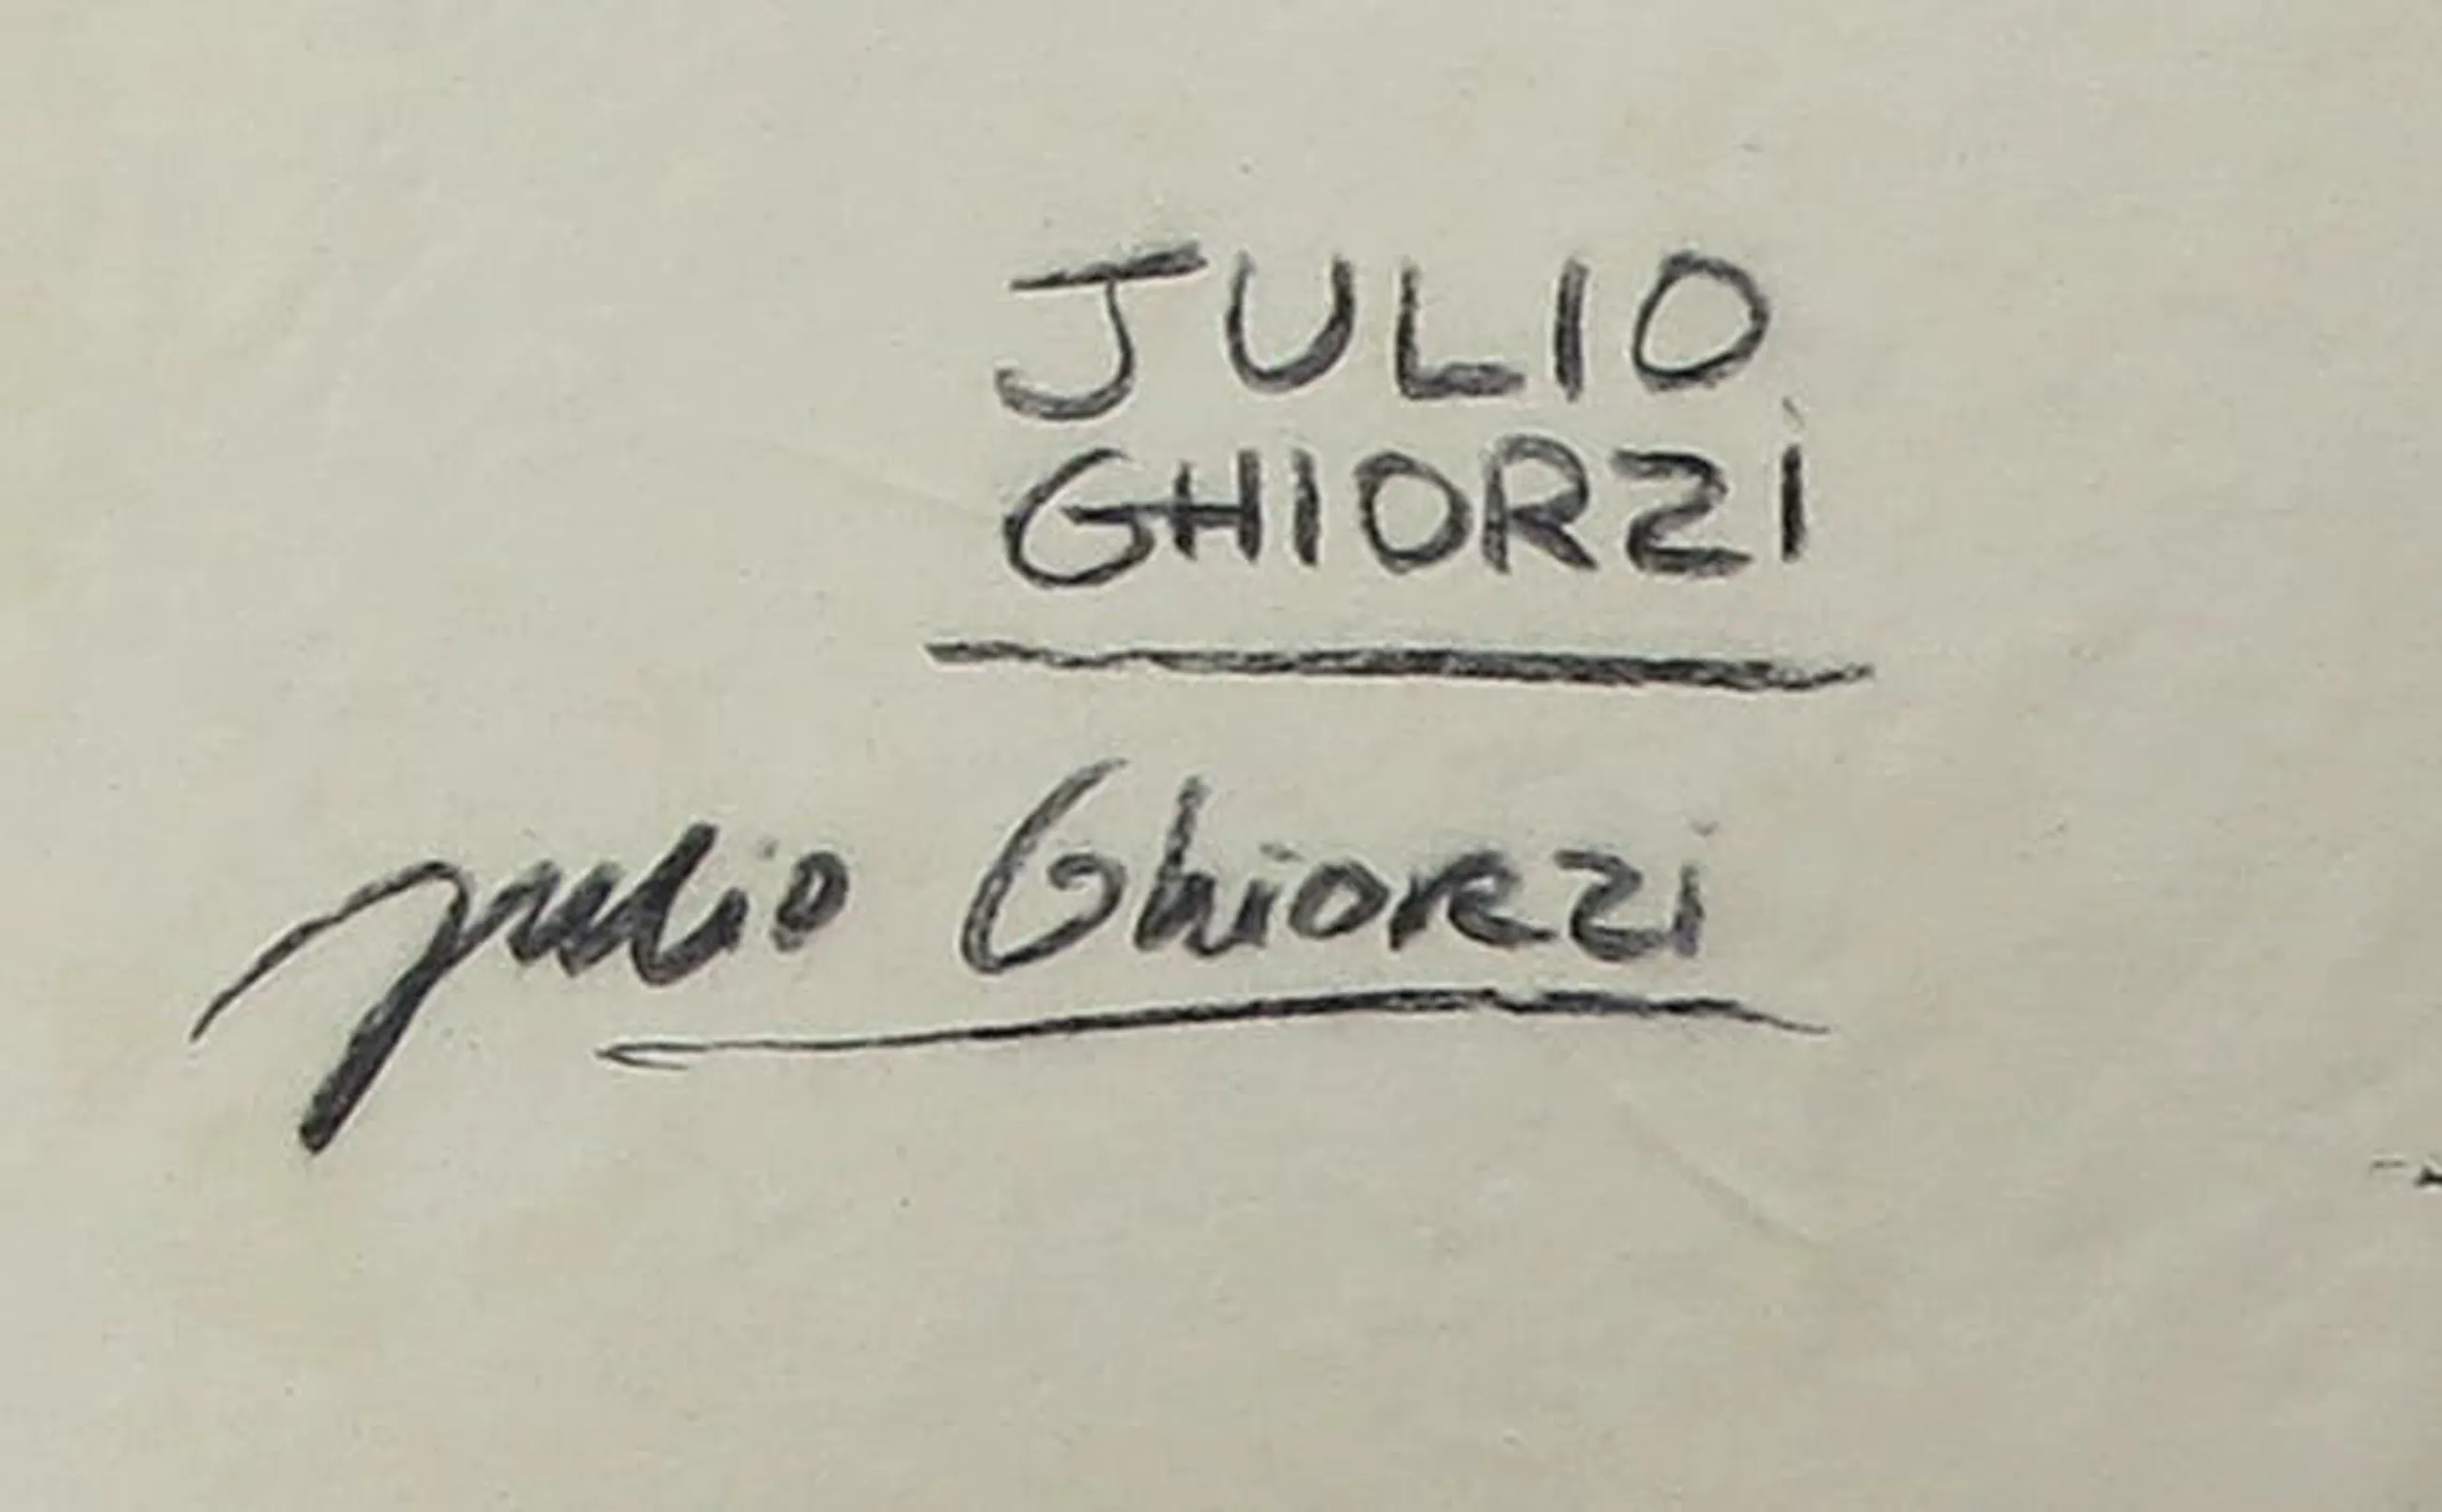 JULIO
GHIORZi
julio Ghiorzi